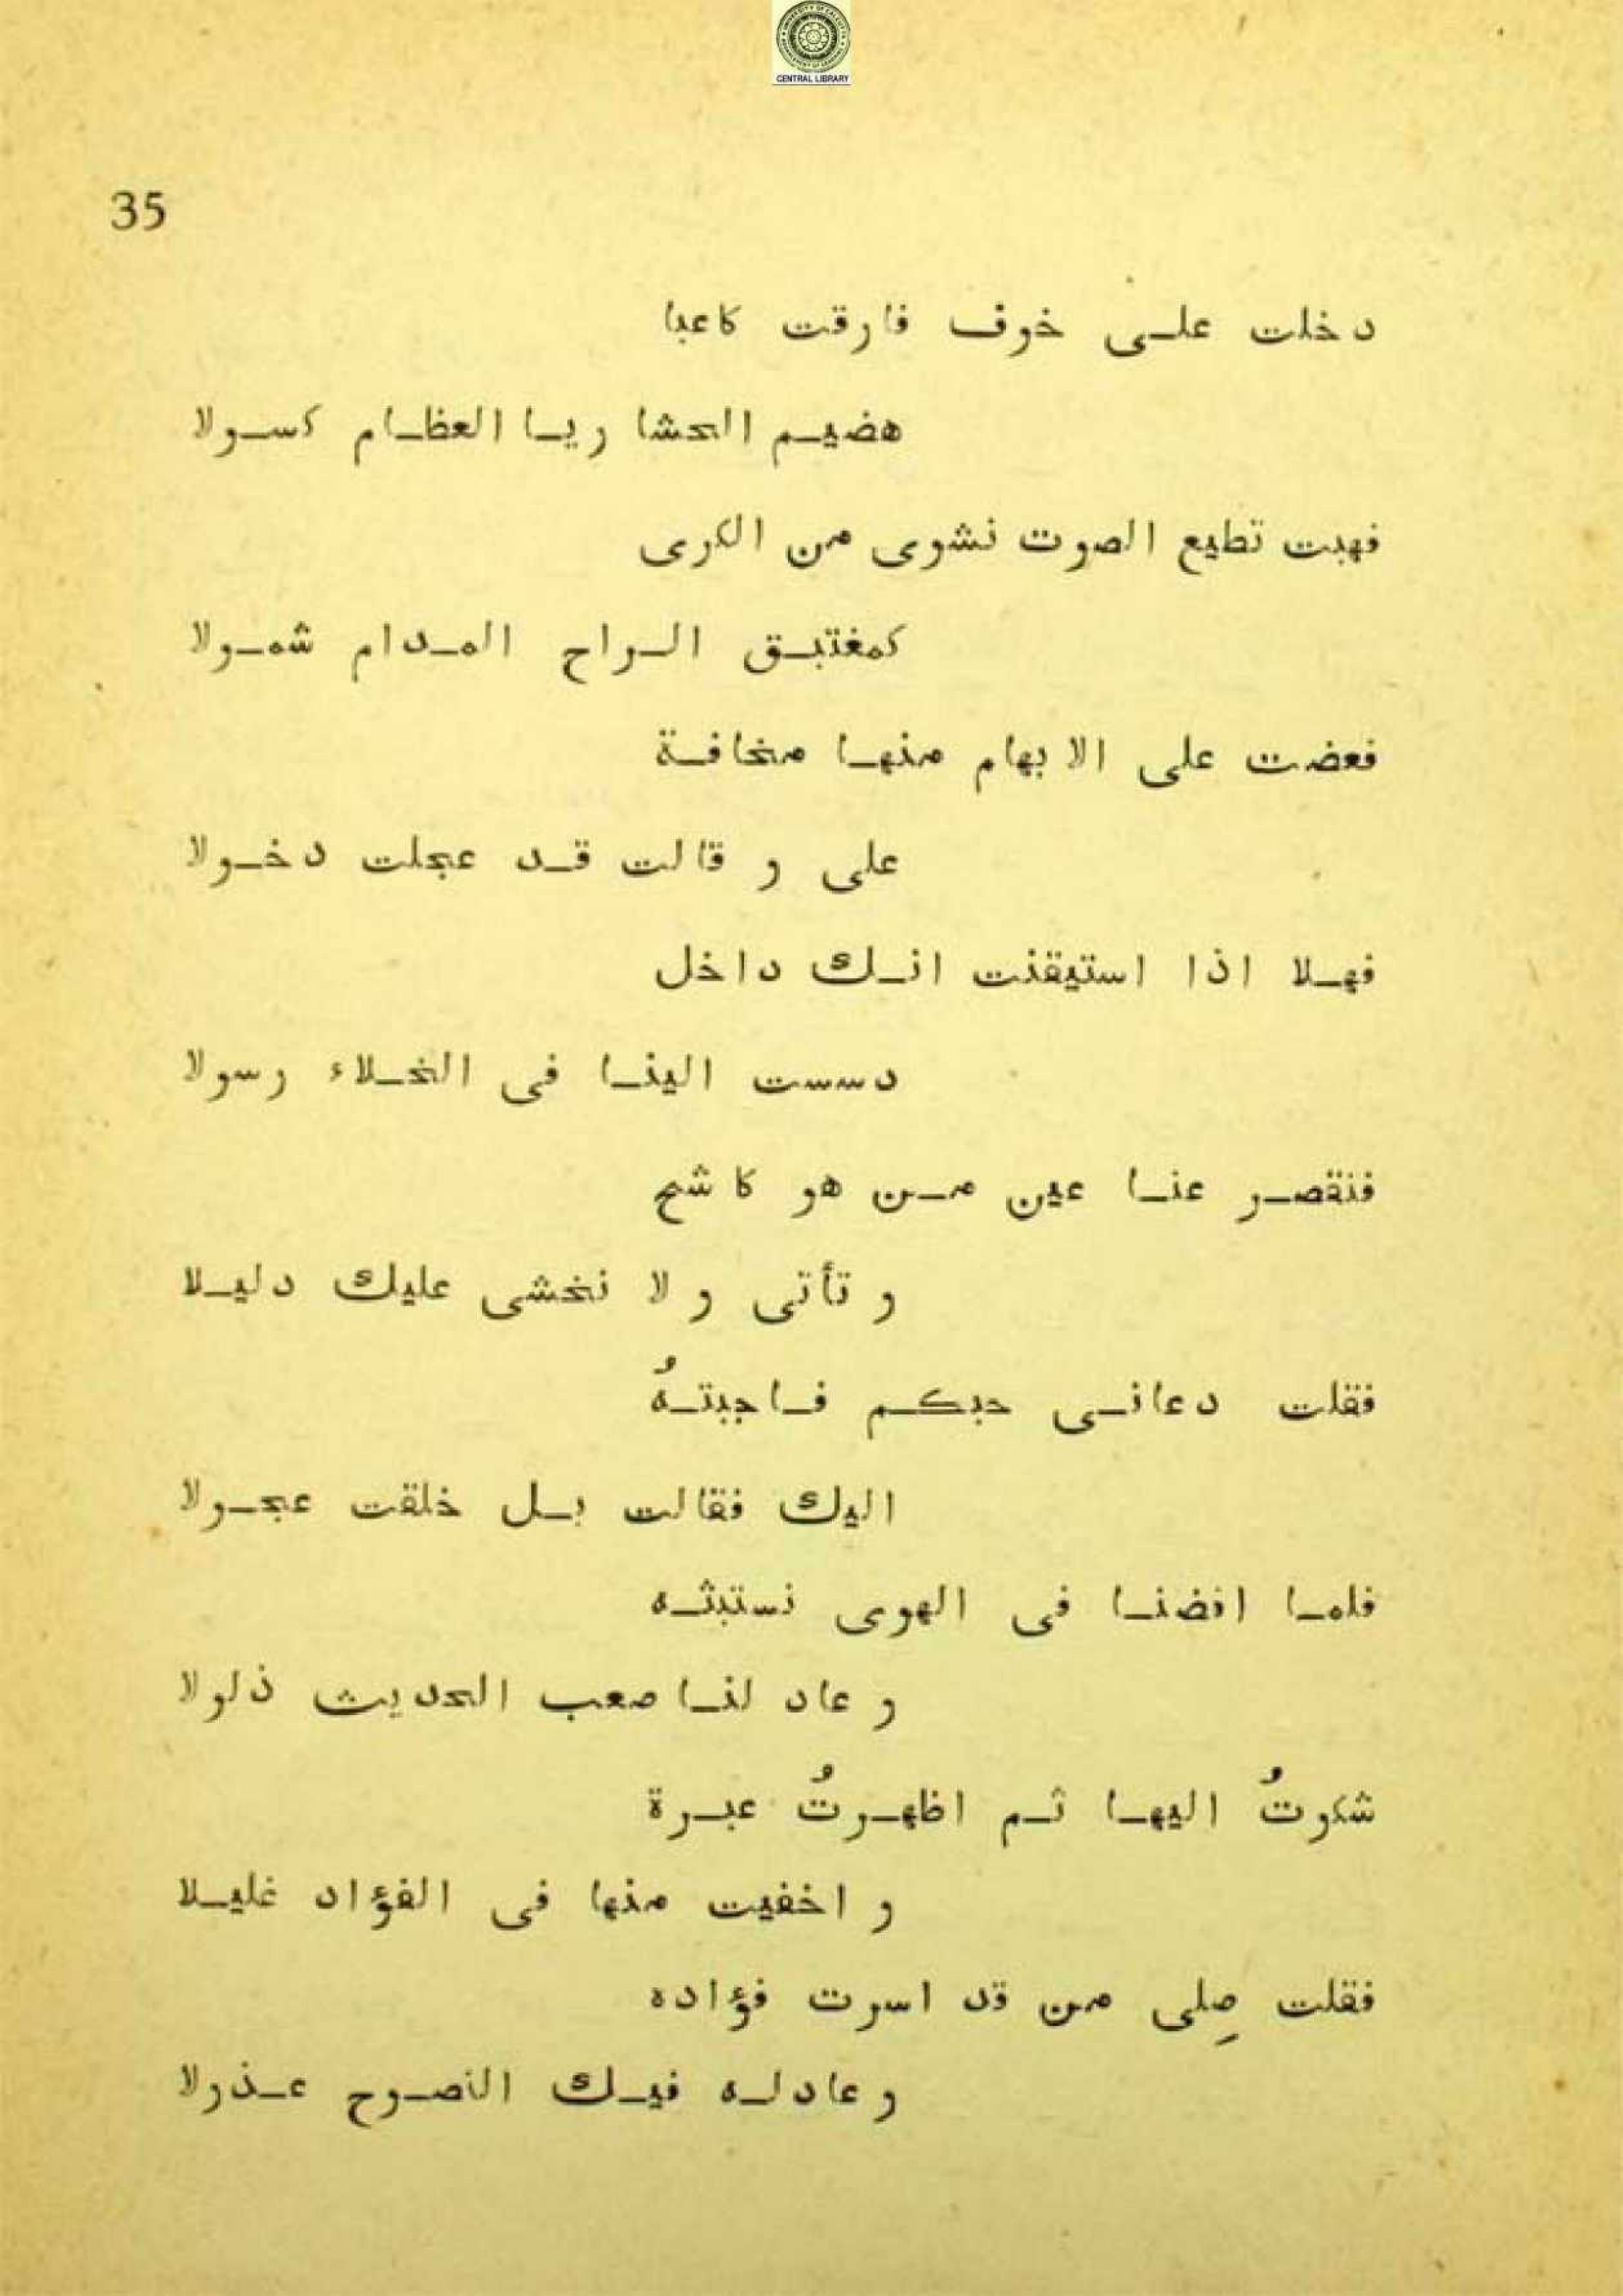 CENTRAL LIBRARY
35
دخلت على خوف فارقت كاعبا
هضيم الحشا ريا العظام كسولا
فهبت تطيع الصوت نشوى من الكرى
كمغتبق الراح المدام شمولا
فعضت على الابهام منها مخافة
على و قالت قد عجلت دخولا
فهلا اذا استيقنت انك داخل
دسست الينا فى الخلاء رسولا
فنقصر عنا عين من هو كاشح
و تأتى و لا نخشى عليك دليلا
فقلت دعانى حبكم فاجبتهُ
اليك فقالت بل خلقت عجولا
فلما افضنا فى الهوى نستبثه
و عاد لنا صعب الحديث ذلولا
شكوتُ اليها ثم اظهرتُ عبرة
و اخفيت منها فى الفؤاد غليلا
فقلت صِلى من قد اسرت فؤاده
و عاد له فيك النصوح عذولا